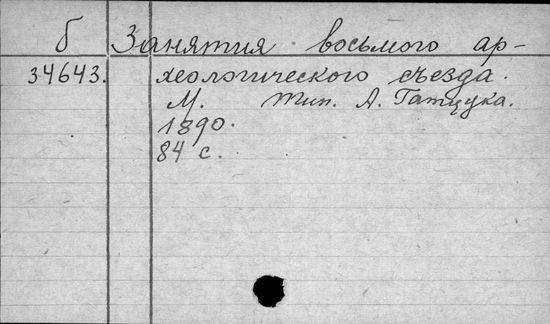 б Занятия восьмого ар-
34643. хеологического съезда.
М. Тип. А. Гатцука.
1890.
84 с.